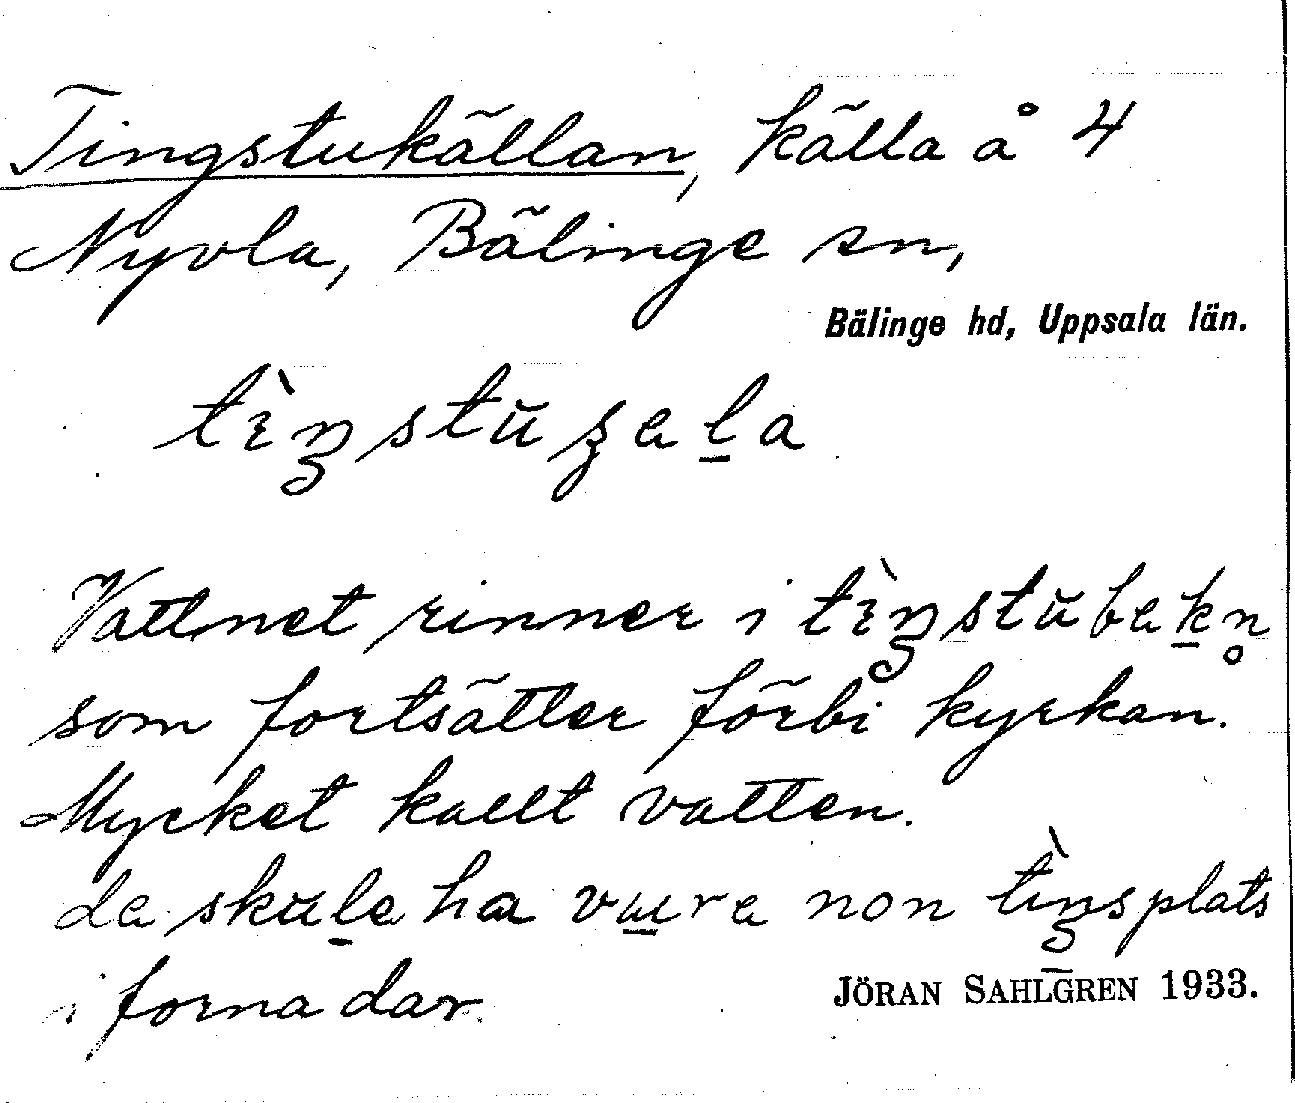 Tingstukällan, källa å 4
Nyvla, Bälinge sn,
Bälinge hd, Uppsala län.
Vattnet rinner i
som fortsätter förbi kyrkan.
Mycket kallt vatten.
de skule ha non tiŋsplats
i forna dar.
JÖRAN SAHLGREN 1933.